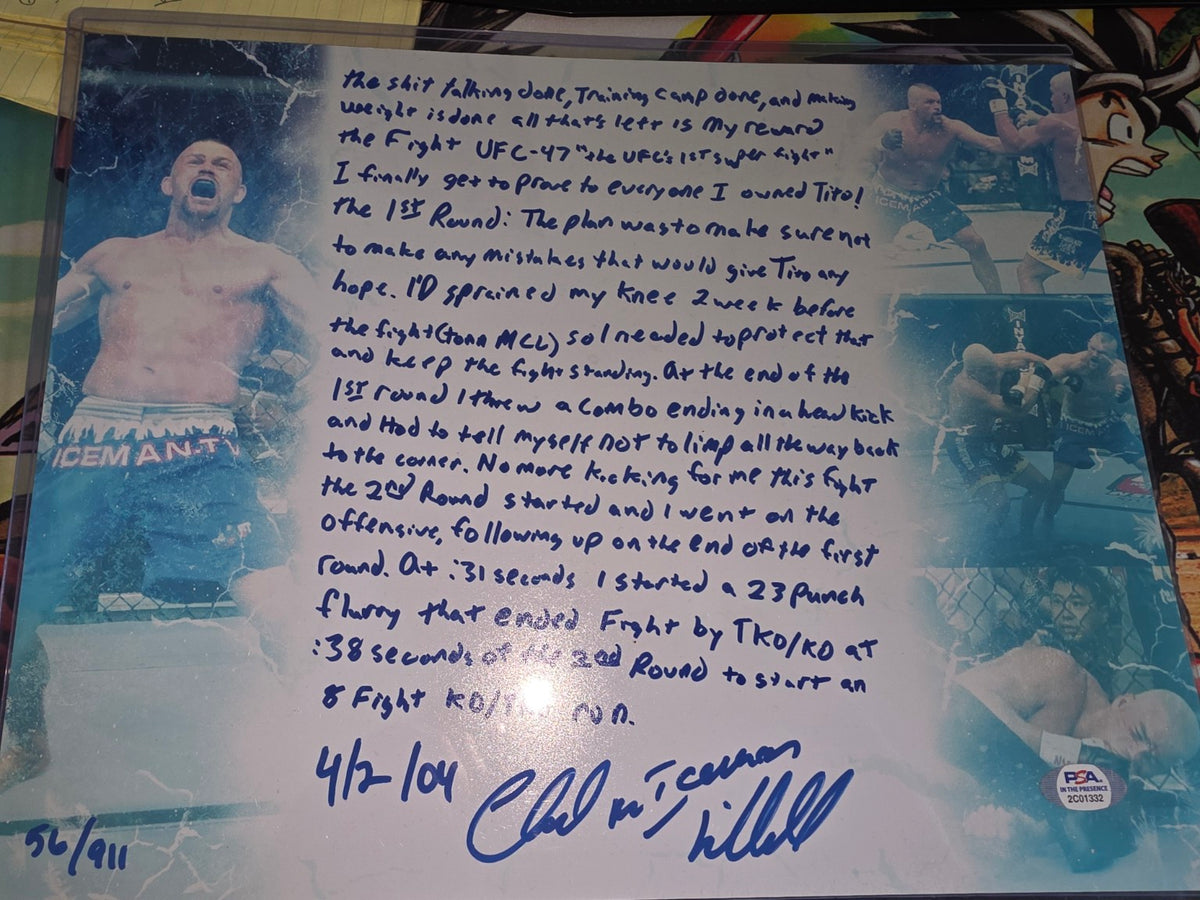 the shit talking done, Training camp done, and making
weight is done all that's left is my reward
the Fight UFC-47 "the UFC's 1ST super fight"
I finally get to prove to everyone I owned Tito!
the 1ST Round: The plan was to make sure not
to make any mistakes that would give Tito any
hope. I'D sprained my knee 2 week before
the fight (torn MCL) so I needed to protect that
and keep the fight standing. At the end of the
1ST round I threw a combo ending in a head kick
and Had to tell myself not to limp all the way back
to the corner. No more kicking for me this fight
the 2nd Round started and I went on the
offensive, following up on the end of the first
round. At :31 seconds I started a 23 punch
flurry that ended Fight by TKO/KO at
:38 seconds of the 2nd Round to start an
8 Fight KO/TKO run.
4/2/04 Chuck "Iceman" Liddell
56/911
ICEMAN-TV
ICEMAN-TV
PSA
IN THE PRESENCE
2C01332